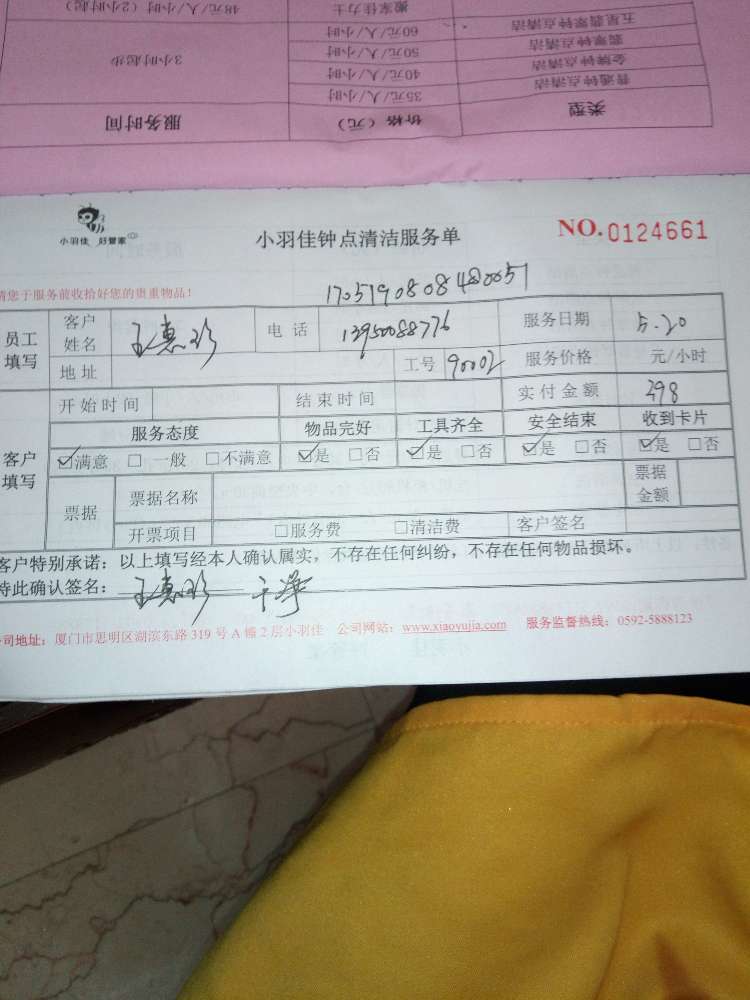 搬家佳力士 48元/人/小时(2小时起)
五星翡翠钟点清洁 60元/人/小时
翡翠钟点清洁 50元/人/小时 3小时起步
金牌钟点清洁 40元/人/小时
普通钟点清洁 35元/人/小时
类型 价格(元) 服务时间
小羽佳 好管家
小羽佳钟点清洁服务单 NO.0124661
请您于服务前收拾好您的贵重物品!
员工填写 客户姓名 王惠珍 电话 13950088776 服务日期 5.20
地址 工号 90002 服务价格 元/小时
开始时间 结束时间 实付金额 298
客户填写 服务态度 物品完好 工具齐全 安全结束 收到卡片
☑满意 □一般 □不满意 ☑是 □否 ☑是 □否 ☑是 □否 ☑是 □否
票据 票据名称 票据金额
开票项目 □服务费 □清洁费 客户签名
客户特别承诺:以上填写经本人确认属实,不存在任何纠纷,不存在任何物品损坏。
特此确认签名:王惠珍 干净
公司地址:厦门市思明区湖滨东路319号A幢2层小羽佳 公司网站:www.xiaoyujia.com 服务监督热线:0592-5888123